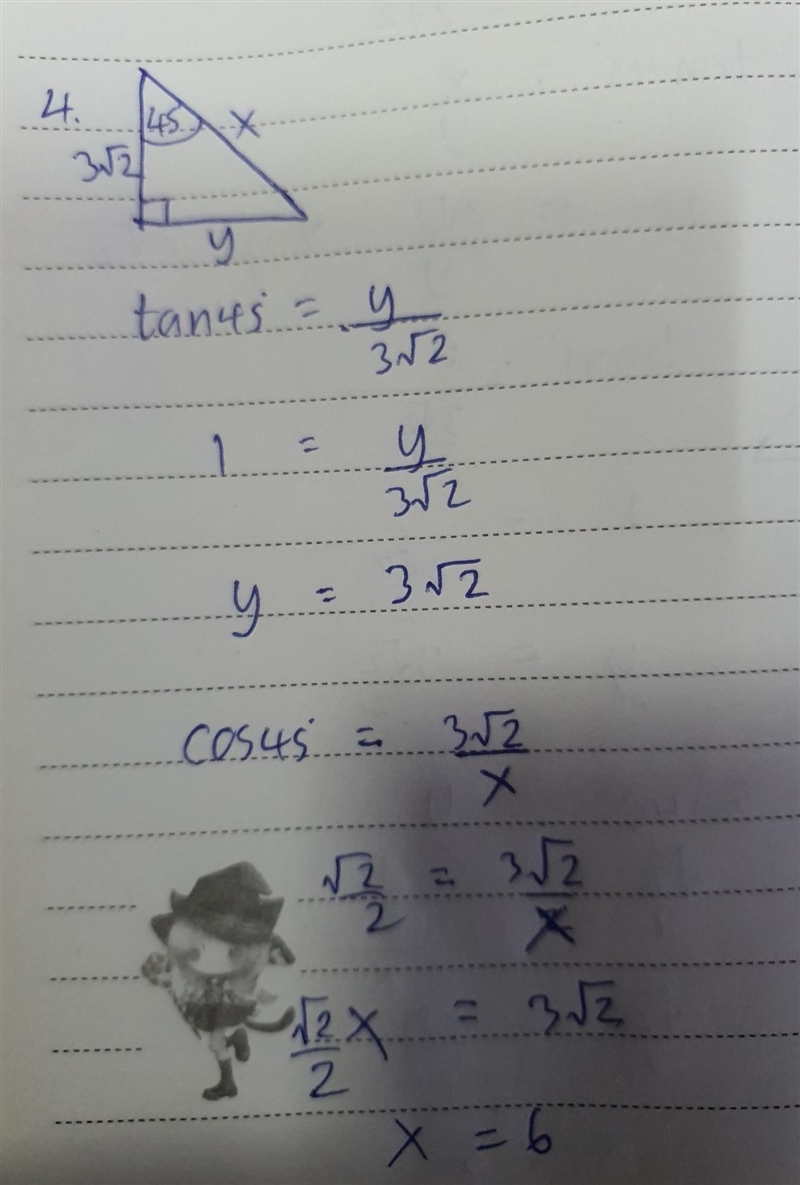 4.
45
x
3√2
y
tan45 = y/3√2
1 = y/3√2
y = 3√2
cos45 = 3√2/x
√2/2 = 3√2/x
√2/2 x = 3√2
x = 6